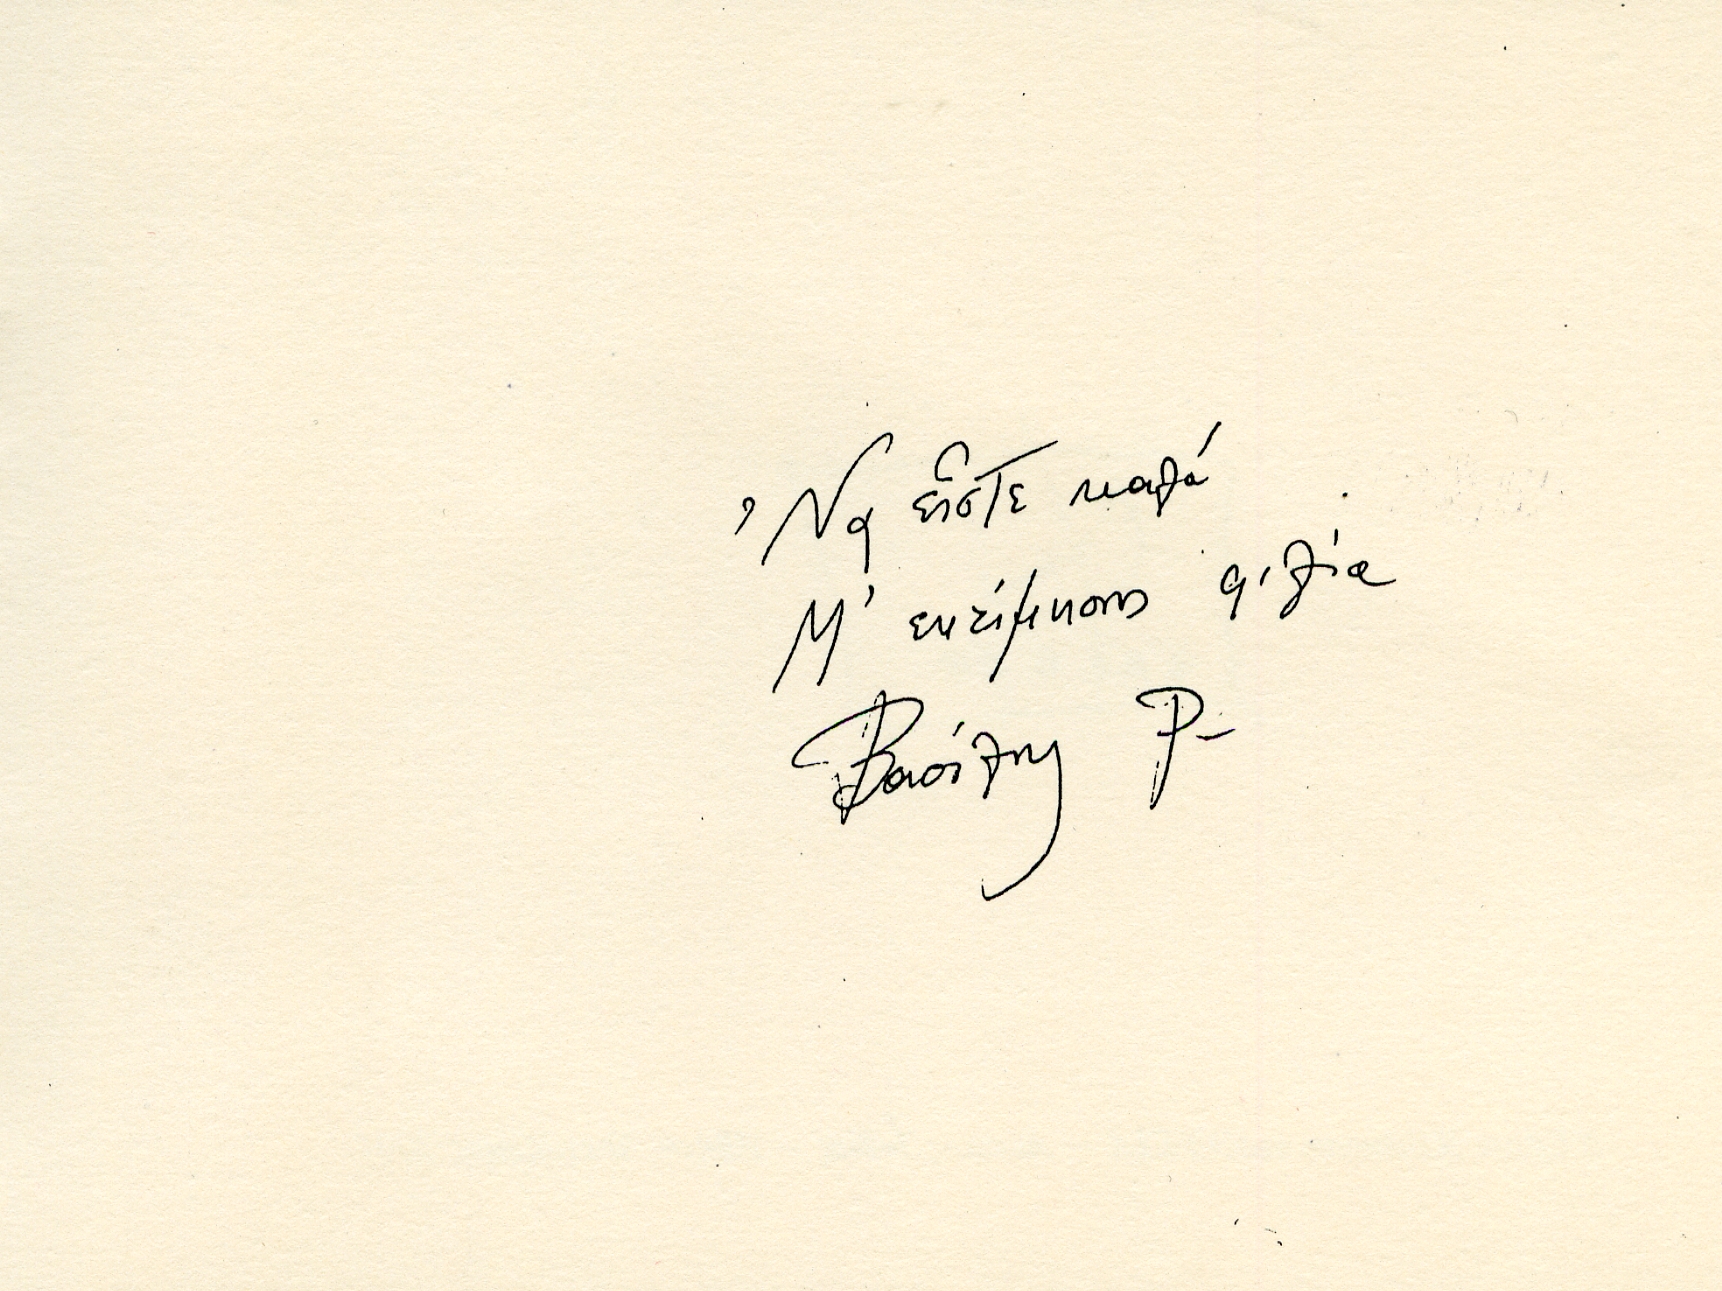 Να εἶστε καλά
Μ' εκτίμηση φιλία
Βασίλης Ρ-